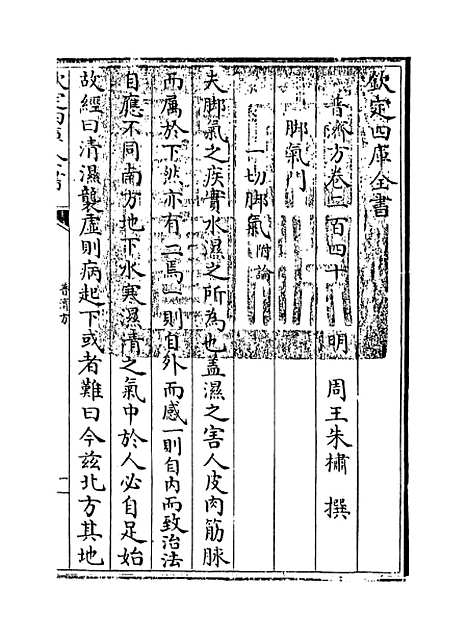 欽定四庫全書
普濟方卷二百四十
明 周王朱橚 撰
脚氣門
一切脚氣附論
夫脚氣之疾實水濕之所為也盖濕之害人皮肉筋脉
而屬於下然亦有二焉一則自外而感一則自内而致治法
自應不同南方地下水寒濕清之氣中於人必自足始
故經曰清濕襲虚則病起下或者難曰今兹北方其地
普濟方
一